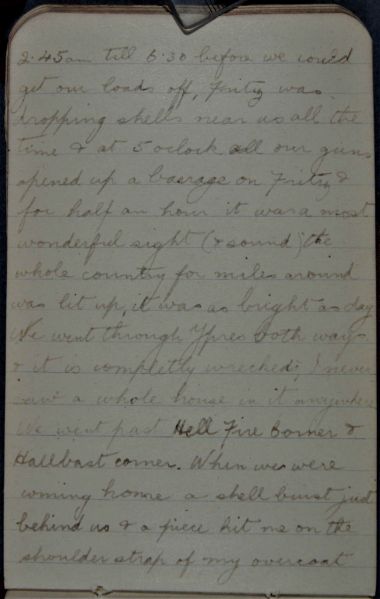 2.45am till 6.30 before we could
get our loads off, Fritz was
dropping shells near us all the
time & at 5 oclock all our guns
opened up a baerage on Fritz &
for half an hour it was a most
wonderful sight (& sound) the
whole country for miles around
was lit up, it was as bright as day
We went through Ypres both ways
& it is completly wreched; I never
saw a whole house in it anywhere
We went past Hell Fire Corner &
Hallbast corner. When we were
coming home a shell burst just
behind us & a piece hit me on the
shoulder strap of my overcoat